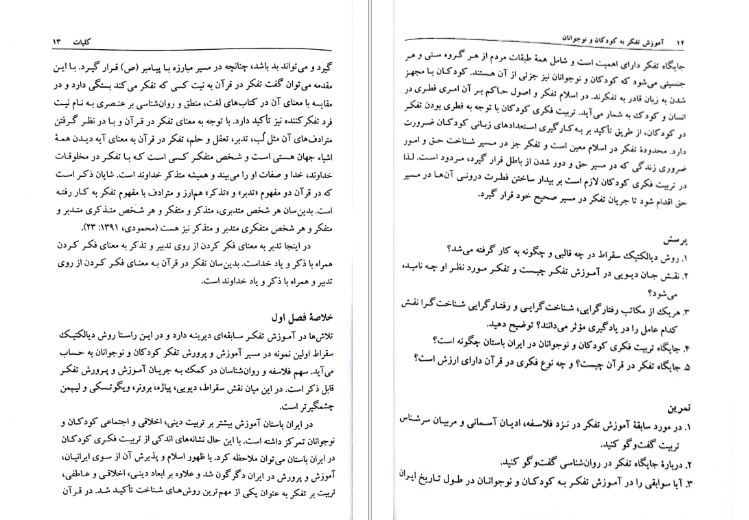 کلیات ۱۳
گیرد و می‌تواند بد باشد، چنانچه در مسیر مبارزه با پیامبر (ص) قرار گیرد. با این
مقدمه می‌توان گفت تفکر در قرآن به نیت کسی که تفکر می‌کند بستگی دارد و در
مقایسه با معنای آن در کتاب‌های لغت، منطق و روان‌شناسی بر عنصری به نام نیت
فرد تفکرکننده نیز تأکید دارد. با توجه به معنای تفکر در قرآن و با در نظر گرفتن
مترادف‌های آن مثل لُب، تدبر، تعقل و حلم، تفکر در قرآن به معنای آیه دیدن همهٔ
اشیاء جهان هستی است و شخص متفکر کسی است که با تفکر در مخلوقات
خداوند، خدا و صفات او را می‌بیند و همیشه متذکر خداوند است. شایان ذکر است
که در قرآن دو مفهوم «تدبر» و «تذکر» هم‌ارز و مترادف با مفهوم تفکر به کار رفته
است. بدین‌سان هر شخص متدبری، متذکر و متفکر و هر شخص متذکری متدبر و
متفکر و هر شخص متفکری متدبر و متذکر نیز هست (محمودی، ۱۳۹۱: ۲۳).
در اینجا تدبر به معنای فکر کردن از روی تدبیر و تذکر به معنای فکر کردن
همراه با ذکر و یاد خداست. بدین‌سان تفکر در قرآن به معنای فکر کردن از روی
تدبیر و همراه با ذکر و یاد خداوند است.
خلاصهٔ فصل اول
تلاش‌ها در آموزش تفکر سابقه‌ای دیرینه دارد و در این راستا روش دیالکتیک
سقراط اولین نمونه در مسیر آموزش و پرورش تفکر کودکان و نوجوانان به حساب
می‌آید. سهم فلاسفه و روان‌شناسان در کمک به جریان آموزش و پرورش تفکر
قابل ذکر است. در این میان نقش سقراط، دیویی، پیاژه، برونر، ویگوتسکی و لیپمن
چشمگیرتر است.
در ایران باستان آموزش بیشتر بر تربیت دینی، اخلاقی و اجتماعی کودکان و
نوجوانان تمرکز داشته است. با این حال نشانه‌های اندکی از تربیت فکری کودکان
در ایران باستان می‌توان ملاحظه کرد. با ظهور اسلام و پذیرش آن از سوی ایرانیان،
آموزش و پرورش در ایران دگرگون شد و علاوه بر ابعاد دینی، اخلاقی و عاطفی،
تربیت بر تفکر به عنوان یکی از مهم‌ترین روش‌های شناخت تأکید شد. در قرآن
۱۴ آموزش تفکر به کودکان و نوجوانان
جایگاه تفکر دارای اهمیت است و شامل همهٔ طبقات مردم از هر گروه سنی و هر
جنسیتی می‌شود که کودکان و نوجوانان نیز جزئی از آن هستند. کودکان با مجهز
شدن به زبان قادر به تفکرند. در اسلام تفکر و اصول حاکم بر آن امری فطری در
انسان و کودک به شمار می‌آید. تربیت فکری کودکان با توجه به فطری بودن تفکر
در کودکان، از طریق تأکید بر به کارگیری استعدادهای زبانی کودکان ضرورت
دارد. محدودهٔ تفکر در اسلام معین است و تفکر جز در مسیر شناخت حق و امور
ضروری زندگی که در مسیر حق و دور شدن از باطل قرار گیرد، مردود است. لذا
در تربیت فکری کودکان لازم است بر بیدار ساختن فطرت درونی آن‌ها در مسیر
حق اقدام شود تا جریان تفکر در مسیر صحیح خود قرار گیرد.
پرسش
۱. روش دیالکتیک سقراط در چه قالبی و چگونه به کار گرفته می‌شد؟
۲. نقش جان دیویی در آموزش تفکر چیست و تفکر مورد نظر او چه نامیده
می‌شود؟
۳. هریک از مکاتب رفتارگرایی، شناخت‌گرایی و رفتارگرایی شناخت‌گرا نقش
کدام عامل را در یادگیری مؤثر می‌دانند؟ توضیح دهید.
۴. جایگاه تربیت فکری کودکان و نوجوانان در ایران باستان چگونه است؟
۵. جایگاه تفکر در قرآن چیست؟ و چه نوع فکری در قرآن دارای ارزش است؟
تمرین
۱. در مورد سابقهٔ آموزش تفکر در نزد فلاسفه، ادیان آسمانی و مربیان سرشناس
تربیت گفت‌وگو کنید.
۲. دربارهٔ جایگاه تفکر در روان‌شناسی گفت‌وگو کنید.
۳. آیا سوابقی را در آموزش تفکر به کودکان و نوجوانان در طول تاریخ ایران